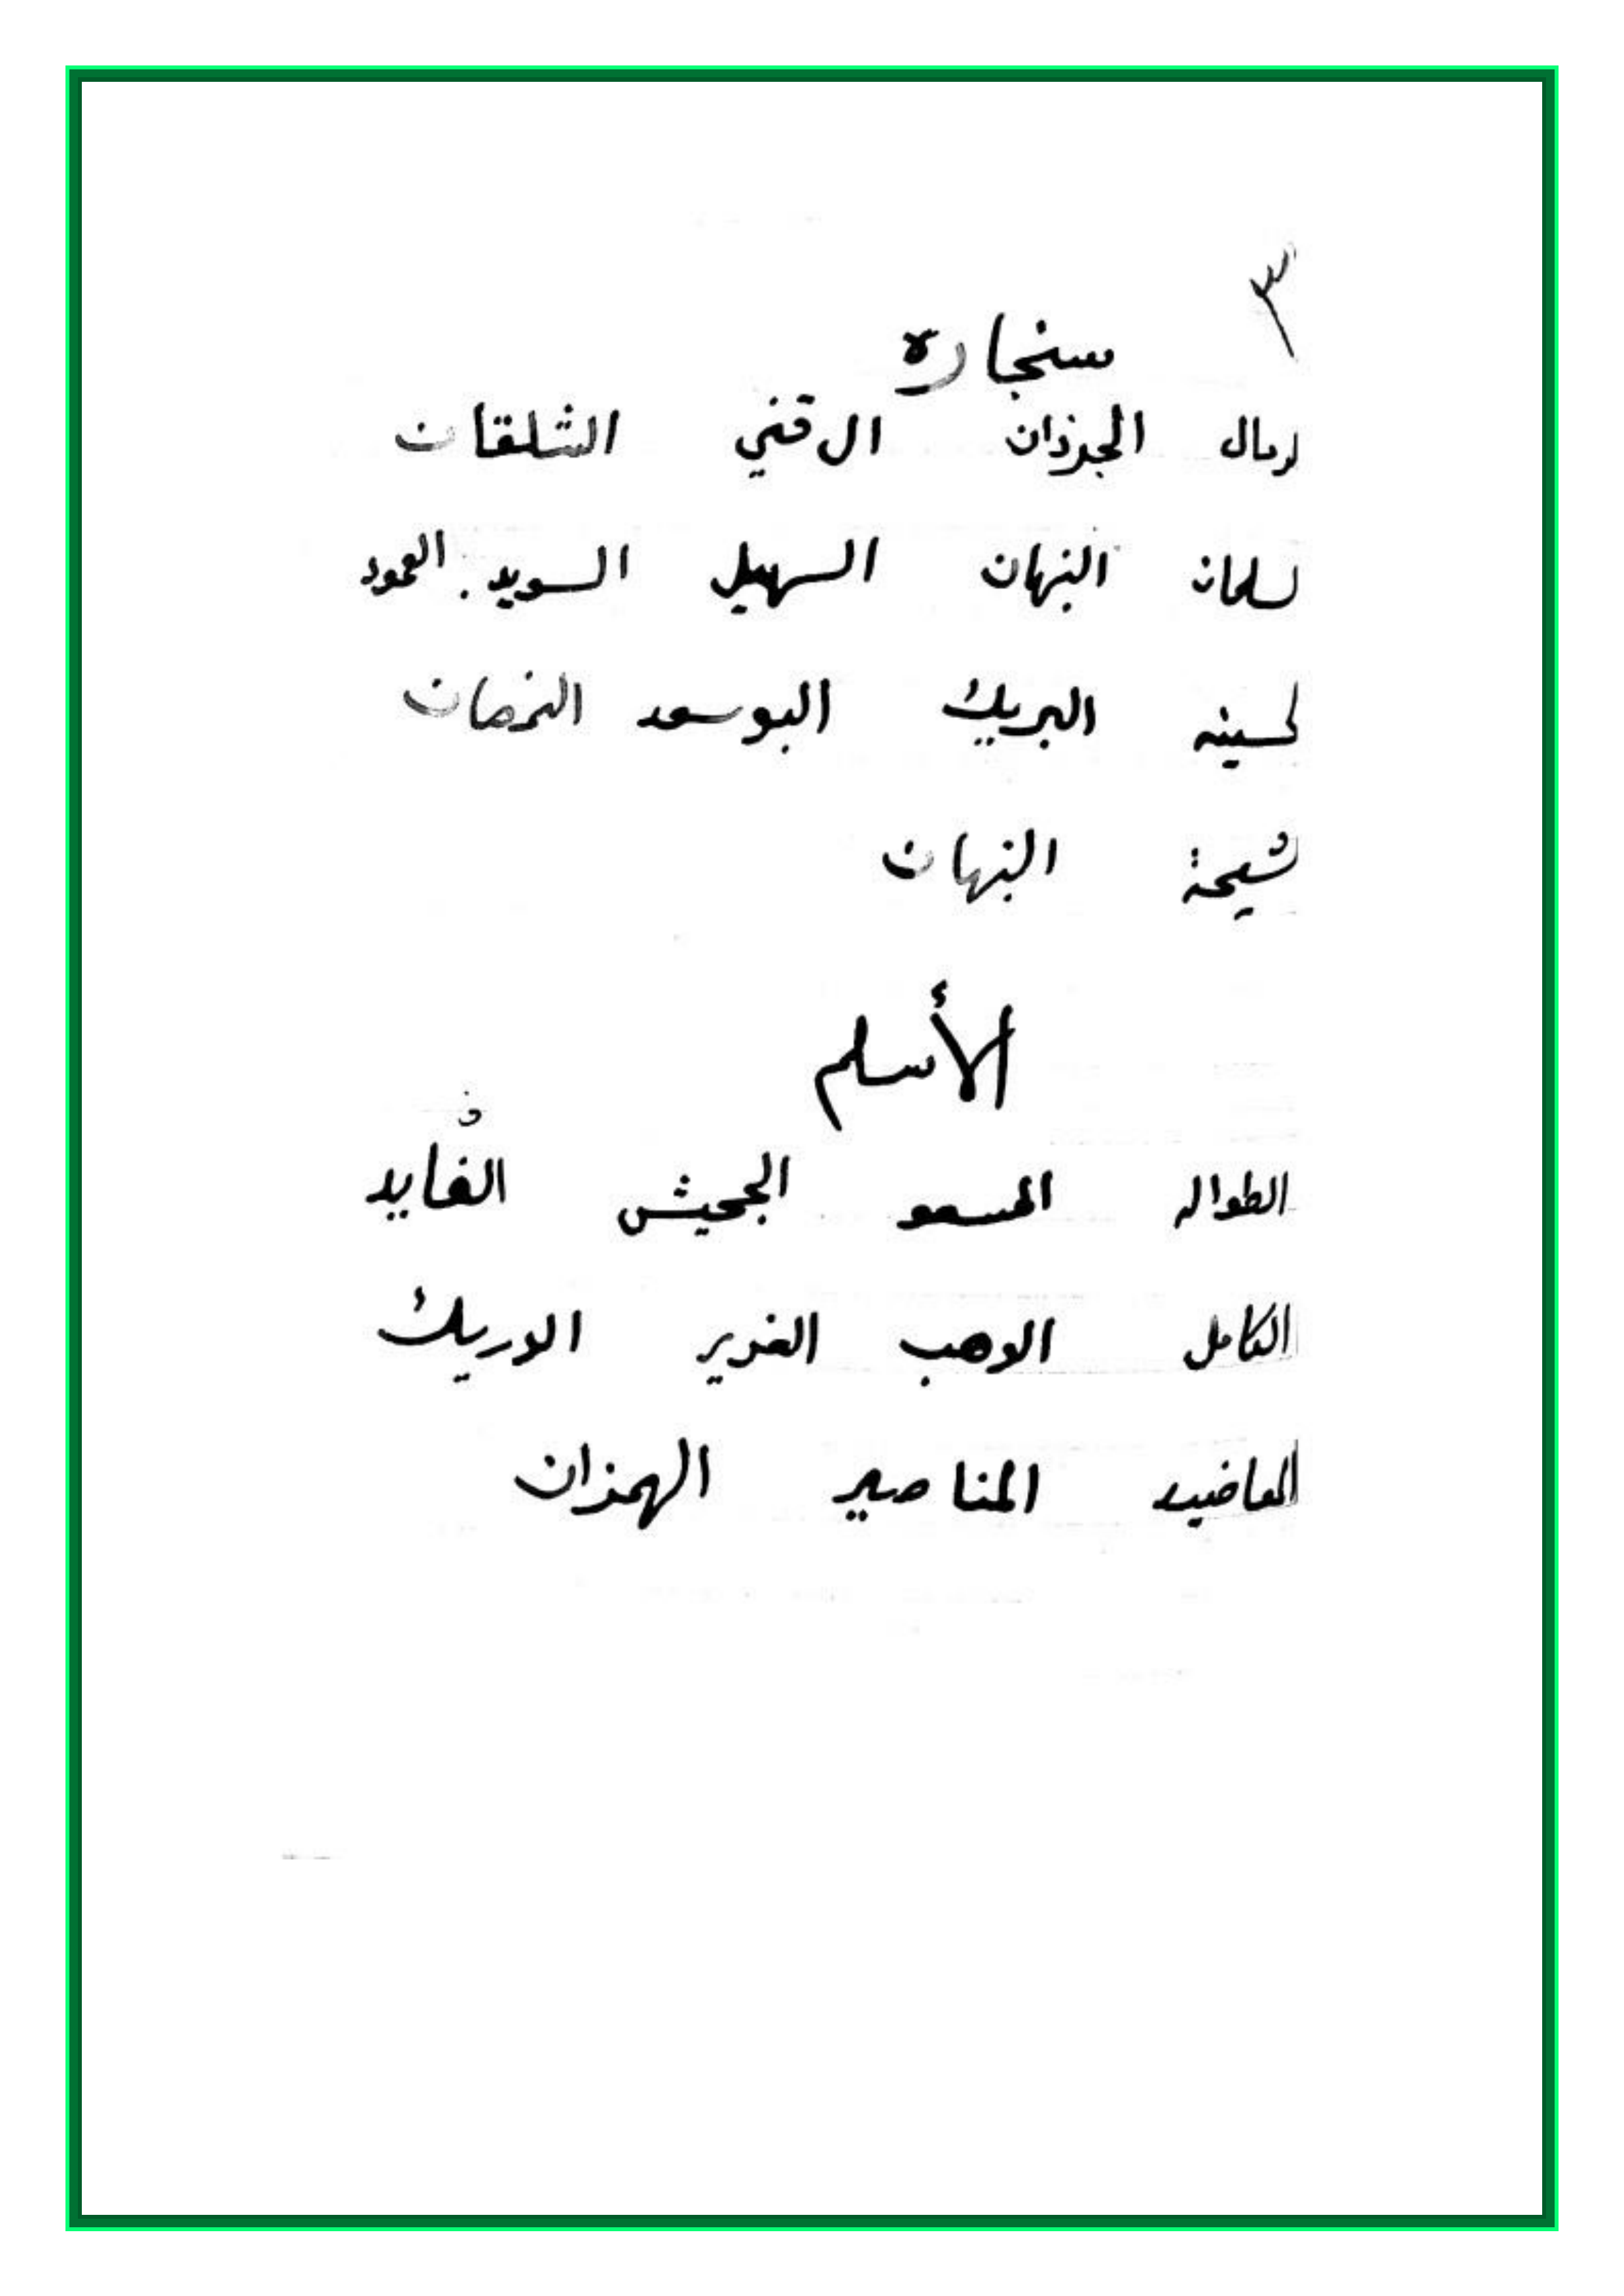 ٣
سنجاره
لرمال الجرذان ال قني الشلقات
لسلمان النبهان السهيل السويد . العمود
لحسينه البريك البوسعد النمصان
لشيحة النبهان
الأسلم
الطواله المسعو الجحيش الفايد
الكامل الوهب الغرير الوريك
المعاضيد المناصير الهمزان